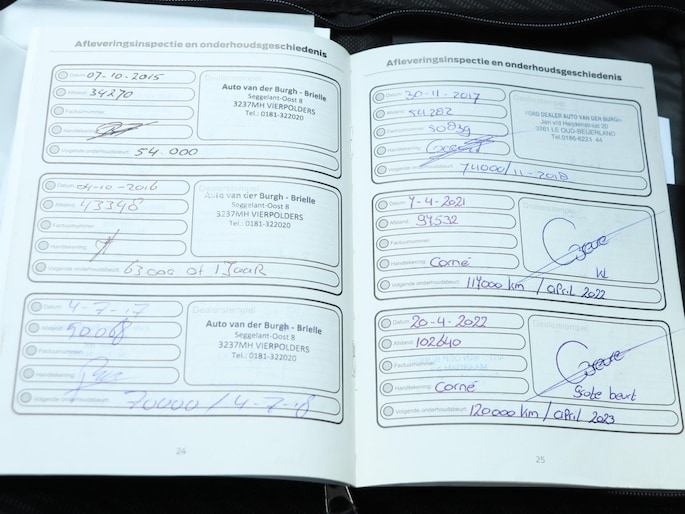 Afleveringsinspectie en onderhoudsgeschiedenis
Datum: 07-10-2015
Afstand: 34270
Factuurnummer:
Handtekening:
Volgende onderhoudsbeurt: 54.000
Auto van der Burgh - Brielle
Seggelant-Oost 8
3237MH VIERPOLDERS
Tel.: 0181-322020
Datum: 04-10-2016
Afstand: 43348
Factuurnummer:
Handtekening:
Volgende onderhoudsbeurt: 63000 of 1 JAAR
Dealerstempel
Auto van der Burgh - Brielle
Seggelant-Oost 8
3237MH VIERPOLDERS
Tel.: 0181-322020
Datum: 4-7-17
Afstand: 50068
Factuurnummer:
Handtekening:
Volgende onderhoudsbeurt: 70000 / 4-7-18
Dealerstempel
Auto van der Burgh - Brielle
Seggelant-Oost 8
3237MH VIERPOLDERS
Tel.: 0181-322020
24
Afleveringsinspectie en onderhoudsgeschiedenis
Datum: 30-11-2017
Afstand: 54282
Factuurnummer: 50839
Handtekening:
Volgende onderhoudsbeurt: 74000/11-2018
FORD DEALER AUTO VAN DER BURGH
Jan v/d Heijdenstraat 20
OUD-BEIJERLAND
Datum: 7-4-2021
Afstand: 94532
Factuurnummer:
Handtekening: Corné
Volgende onderhoudsbeurt: 114000 km / april 2022
Datum: 20-4-2022
Afstand: 102640
Factuurnummer:
Handtekening: Corné
Volgende onderhoudsbeurt: 120000 km / april 2023
Dealerstempel
Grote beurt
25